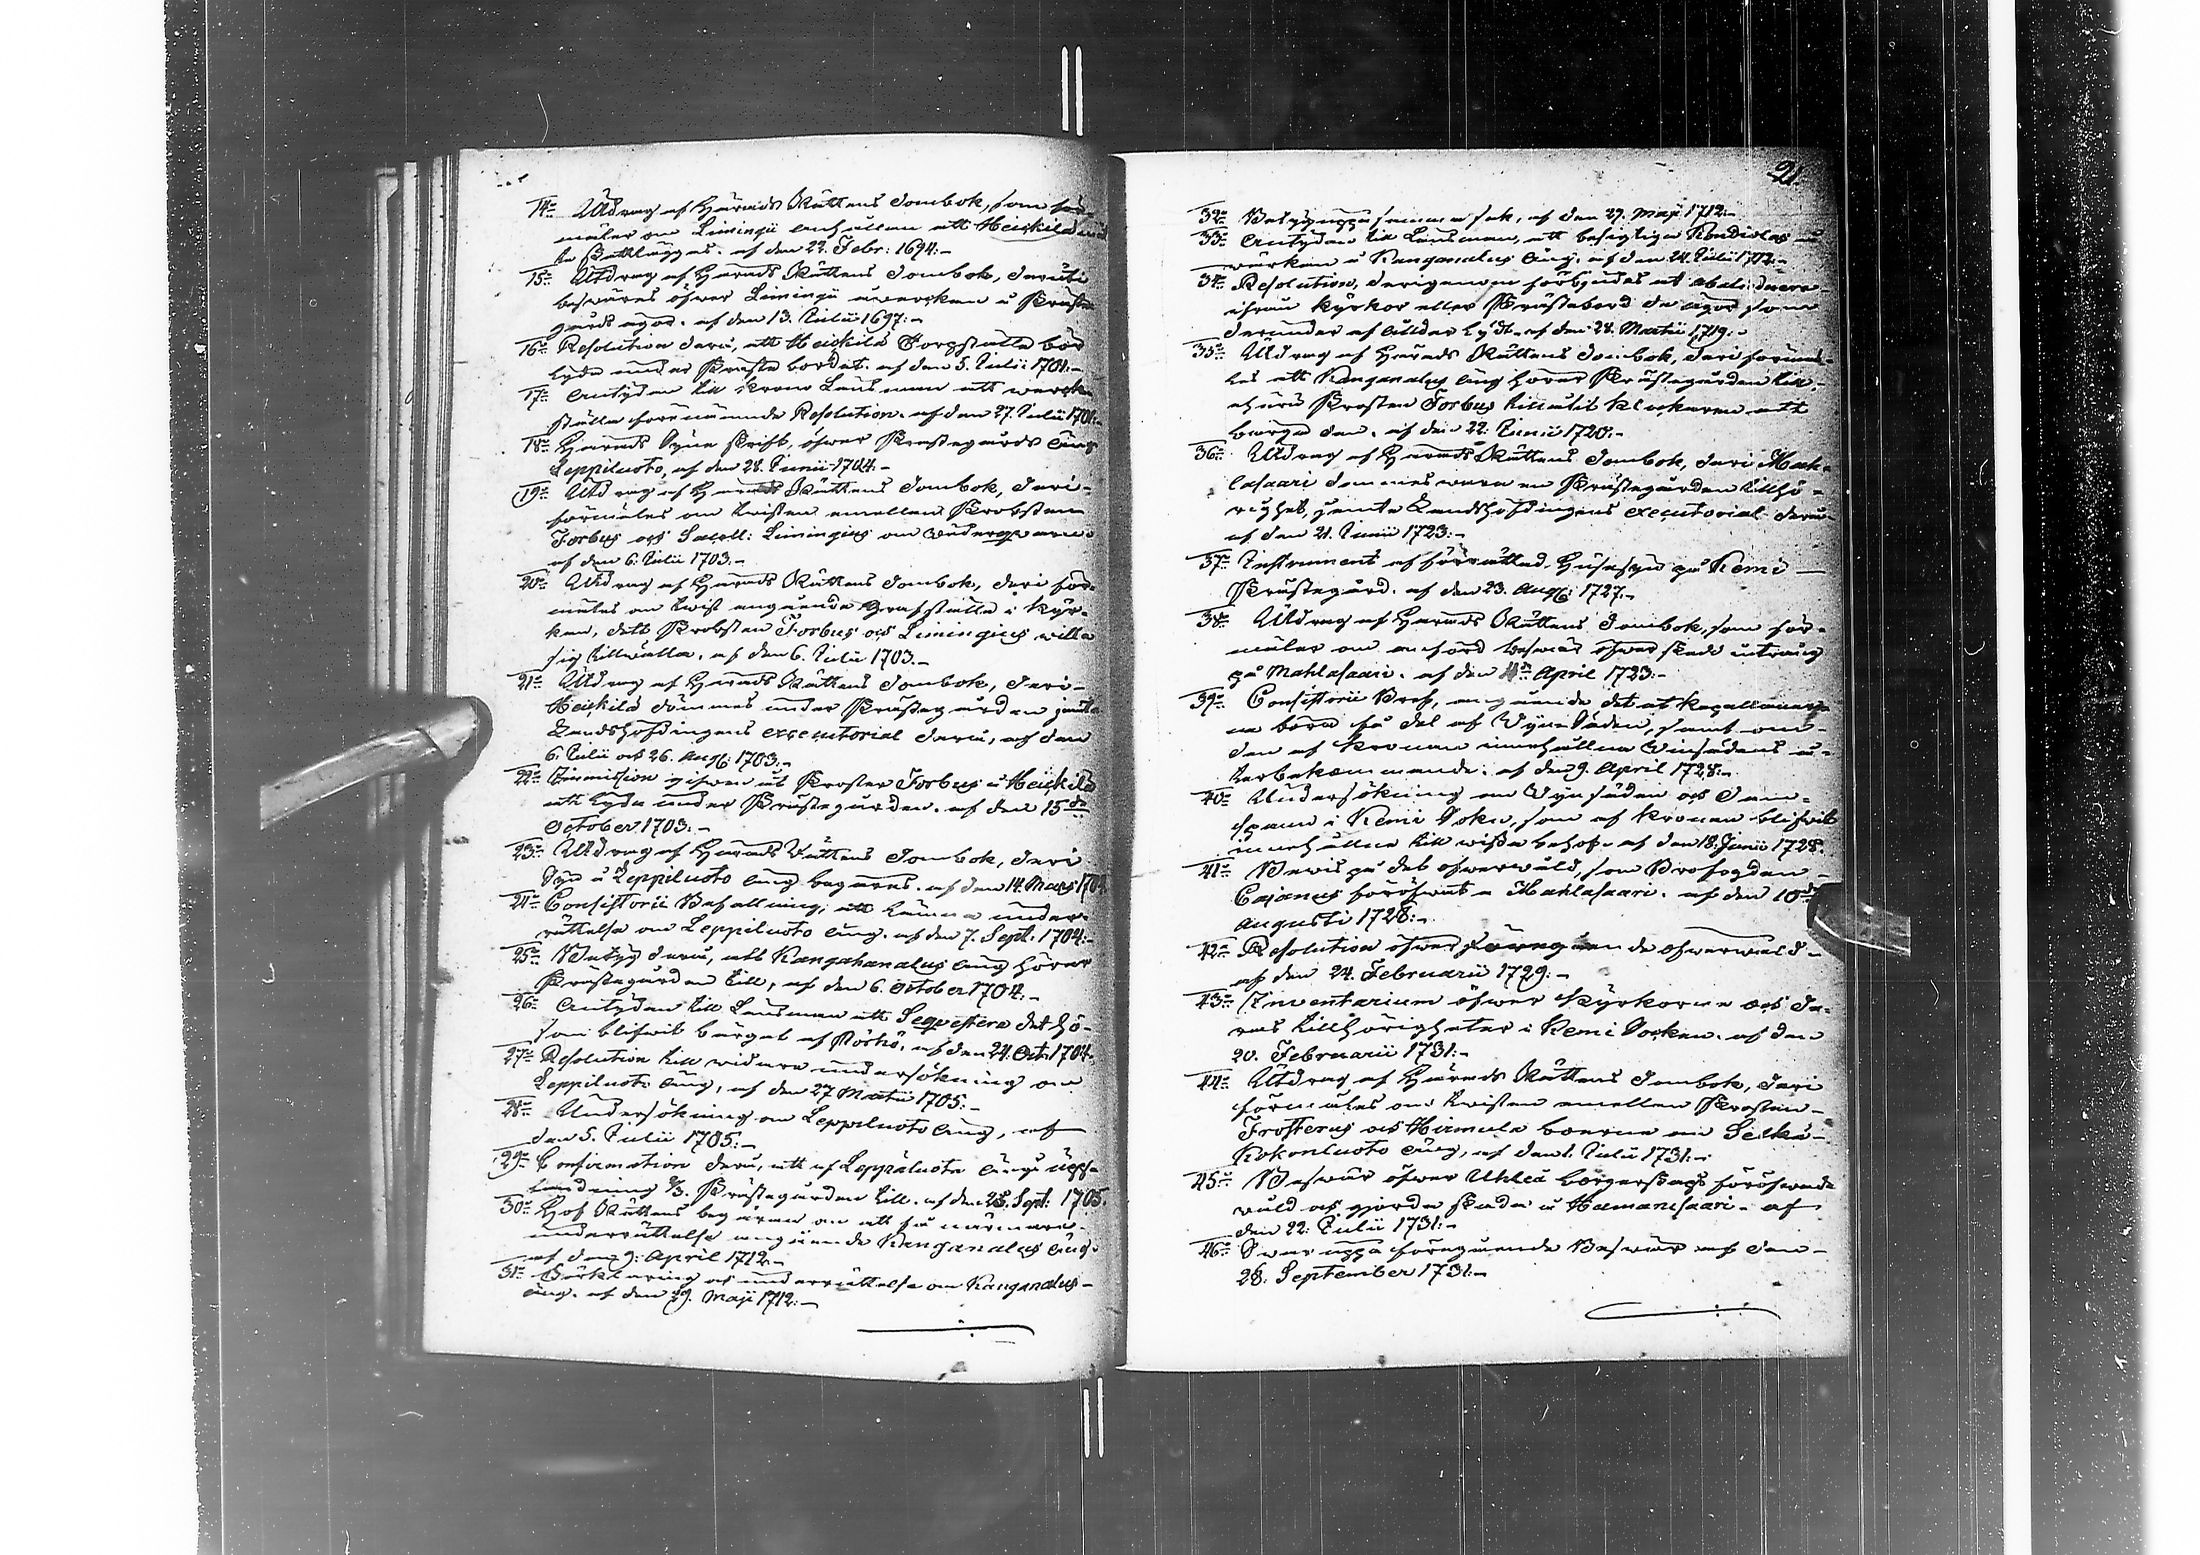 14. Utdrag af Härads Rättens dombok, som för-
mäler om Limingii anhållan att Heickilä må
skattläggas. af den 22. Febr: 1694.
15. Utdrag af Härads Rättens dombok, deruti
beswäres öfwer Limingii åwerckan å Präste
gårds ägor. af den 13. Julii 1697.
16. Resolution derå, att Heickilä Torpställe bör
lyda under Prästebordet. af den 5. Julii 1701.
17. Antydan till Krono Länsman att werck-
ställa förenämnde Resolution. af den 27. Julii 1701.
18. Härads Syne Skrift, öfwer Prestegårds äng
Leppiluoto, af den 28. Junii 1704.
19. Utdrag af Härads Rättens dombok, deri-
förmäles om twisten emellan Probsten
Forbus och Sacell: Limingius om
af den 6. Julii 1703.
20. Utdrag af Härads Rättens dombok, deri för-
mäles om twist angående Grafställe i Kyr-
kan, dett Probsten Forbus och Limingius willa
sig tillwälla. af den 6. Julii 1703.
21. Utdrag af Härads Rättens dombok, deri-
Heickilä dömmes under Prästegården jämte
Landshöfdingens executorial derå, af den
6. Julii och 26. Aug: 1703.
22. Immission gifwen åt Prosten Forbus å Heickilä
att lyda under Prästegården. af den 15de
October 1703.
23. Utdrag af Härads Rättens dombok, deri
Syn å Leppiluoto äng begäres. af den 14. Mars 1704
24. Consistorii Befallning, att lämna under-
rättelse om Leppiluoto äng. af den 7. Sept. 1704.
25. Betyg derå, att Kangahanalus äng hörer
Prästegården till, af den 6. October 1704.
26. Antydan till Länsman att Sequestera det hö-
som blifwit bärgat af Pörhö, af den 24. Oct. 1704.
27. Resolution till widare undersökning om
Leppiluoto äng, af den 27 Martii 1705.
28. Undersökning om Leppiluoto äng, af
den 5. Julii 1705.
29. Confirmation derå, att af Leppäluoto ängs upp-
landning 2/3. Prästegården till. af den 28. Sept: 1705.
30. Hof Rättens begäran om att få närmare-
underrättelse angående Kanganalus äng.
af den 9: April 1712.
31. Förklaring och underrättelse om Kanganalus-
äng. af den 29. Maji 1712.
21.
32. Betyg uppå samma sak, af den 29. Maji 1712.
33. Antydan till Länsman, att besigtiga Kondiolas å-
wärkan å Kanganalus äng. af den 24. Julii 1712.
34. Resolution, derigenom förbjudes at abalienera
ifrån kyrkor eller Prästebord de ägor som
derunder af ålder lydt. af den 28. Martii 1719.
35. Utdrag af Härads Rättens dombok, deri förmä-
les att Kanganalus äng hörer Prästegården till,
ehuru Prosten Forbus tillåtit Klockaren att
berga den. af den 22. Junii 1720.
36. Utdrag af Härads Rättens dombok, deri Mah-
lasaari dömmes wara en Prästegården tillhö-
righet, jämte Landshöfdingens executorial derå
af den 21. Junii 1723.
37. Instrument af förrättad Husesyn på Kemi
Prästegård. af den 23. Aug: 1727.
38. Utdrag af Härads Rättens dombok, som för-
mäler om anförd beswär öfwer skedt intrång
på Mahlasaari. af den April 1723.
39. Consistorii Bref, angående det at kapellanar-
ne böra få del af Wynsäden, samt om-
den af Kronan innehållna Winsädens å-
terbekommande. af den 9. April 1728.
40. Undersökning om Wynsäden och
i Kemi Sokn, som af Kronan blifwit
innehållne till wissa behof. af den 18. Junii 1728.
41. Bewis på det öfwerwåld, som Brofogden
Cajanus föröfwat å Mahlasaari. af den 10de
Augusti 1728.
42. Resolution öfwer föregående öfwerwåld
af den 24. Februarii 1729.
43. Inventarium öfwer Kyrkorne och de-
ras tillhörigheter i Kemi Socken. af den
20. Februarii 1731.
44. Utdrag af Härads Rättens dombok, deri
förmäles om twisten emellan Prosten-
Frosterus och Hirmula boerne om Selkä-
Kokonluoto äng, af den 1. Julii 1731.
45. Beswär öfwer Uhleå borgerskaps föröfwade
wåld och gjorda skada å Hamanisaari. af
den 22. Julii 1731.
46. Swar uppå föregående Beswär af den
28. September 1731.